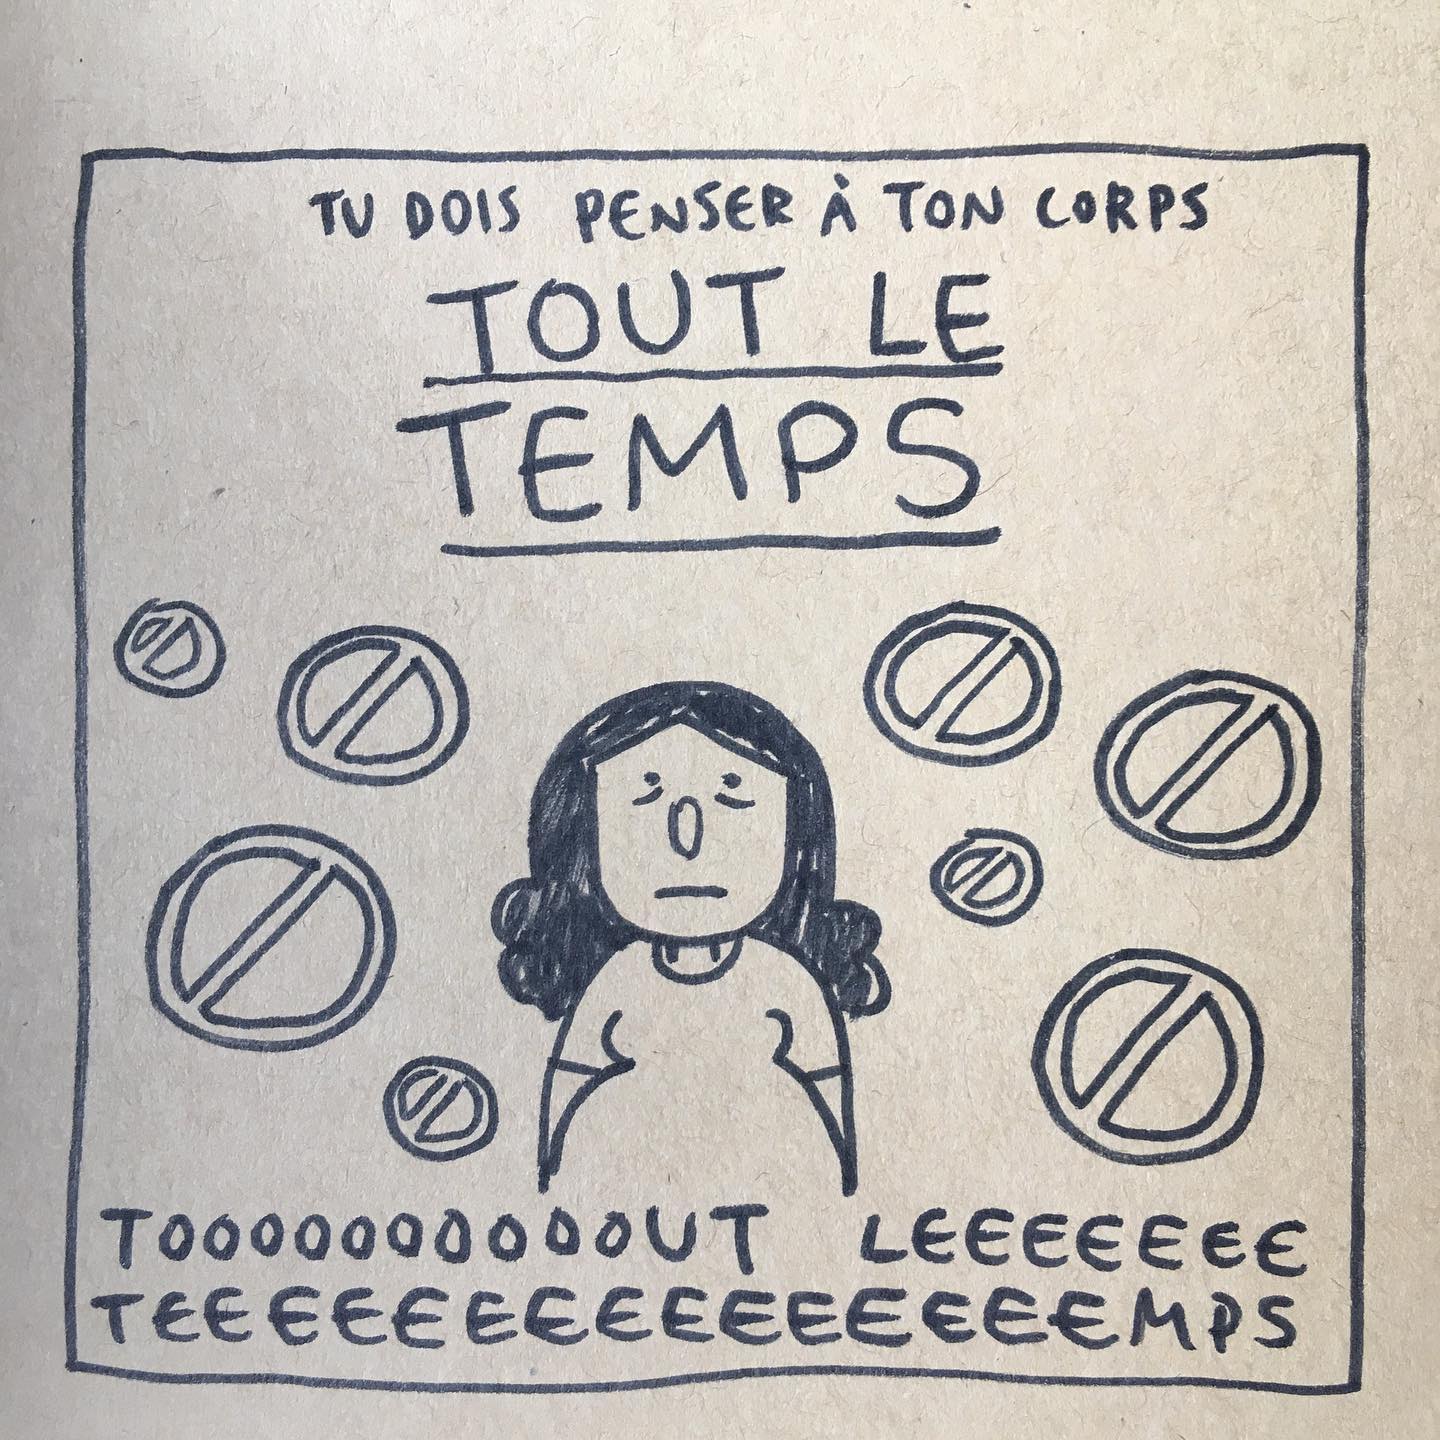 TU DOIS PENSER À TON CORPS
TOUT LE
TEMPS
TOOOOOOOOOOOUT LEEEEEEE
TEEEEEEEEEEEEEEEEMPS